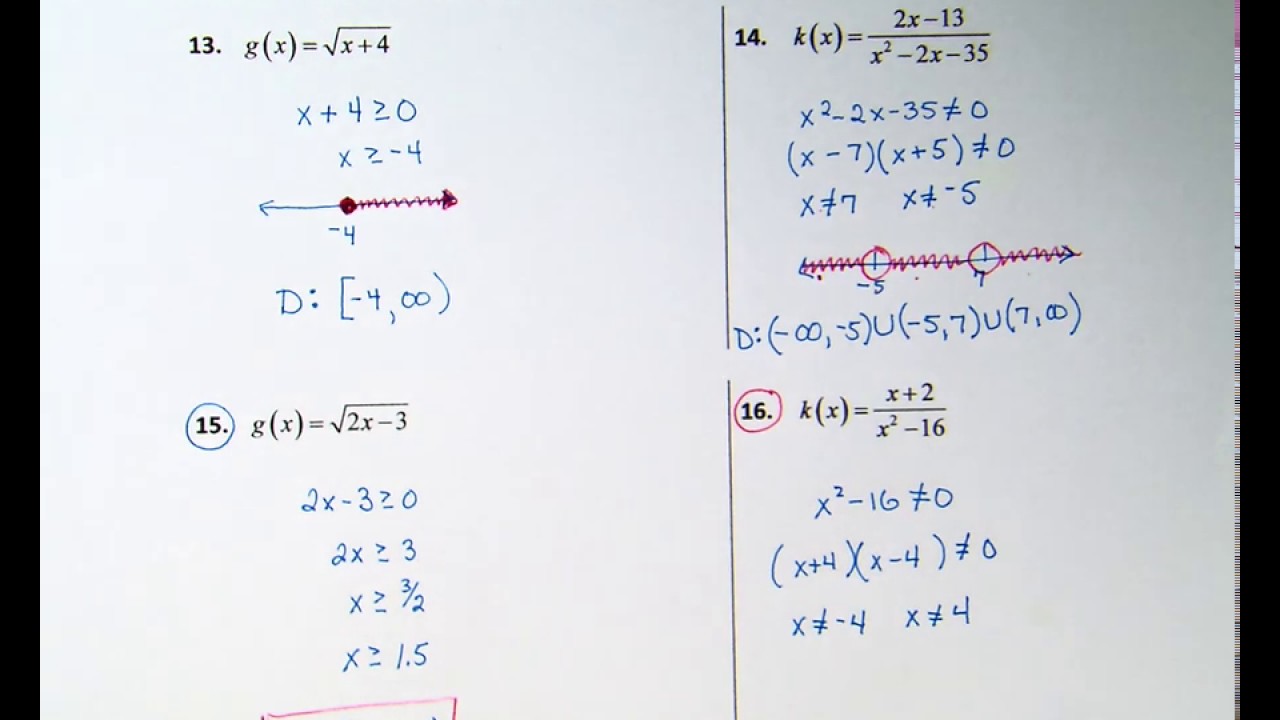 13. g(x)=√x+4
x + 4 ≥ 0
x ≥ -4
-4
D: [-4, ∞)
14. k(x)= 2x−13 / x² −2x−35
x²-2x-35≠0
(x-7)(x+5)≠0
x≠7 x≠-5
-5 7
D:(-∞,-5)∪(-5,7)∪(7,∞)
15. g(x)=√2x−3
2x-3≥0
2x ≥ 3
x ≥ 3/2
x ≥ 1.5
16. k(x)= x+2 / x² −16
x²-16≠0
(x+4)(x-4)≠0
x≠-4 x≠4